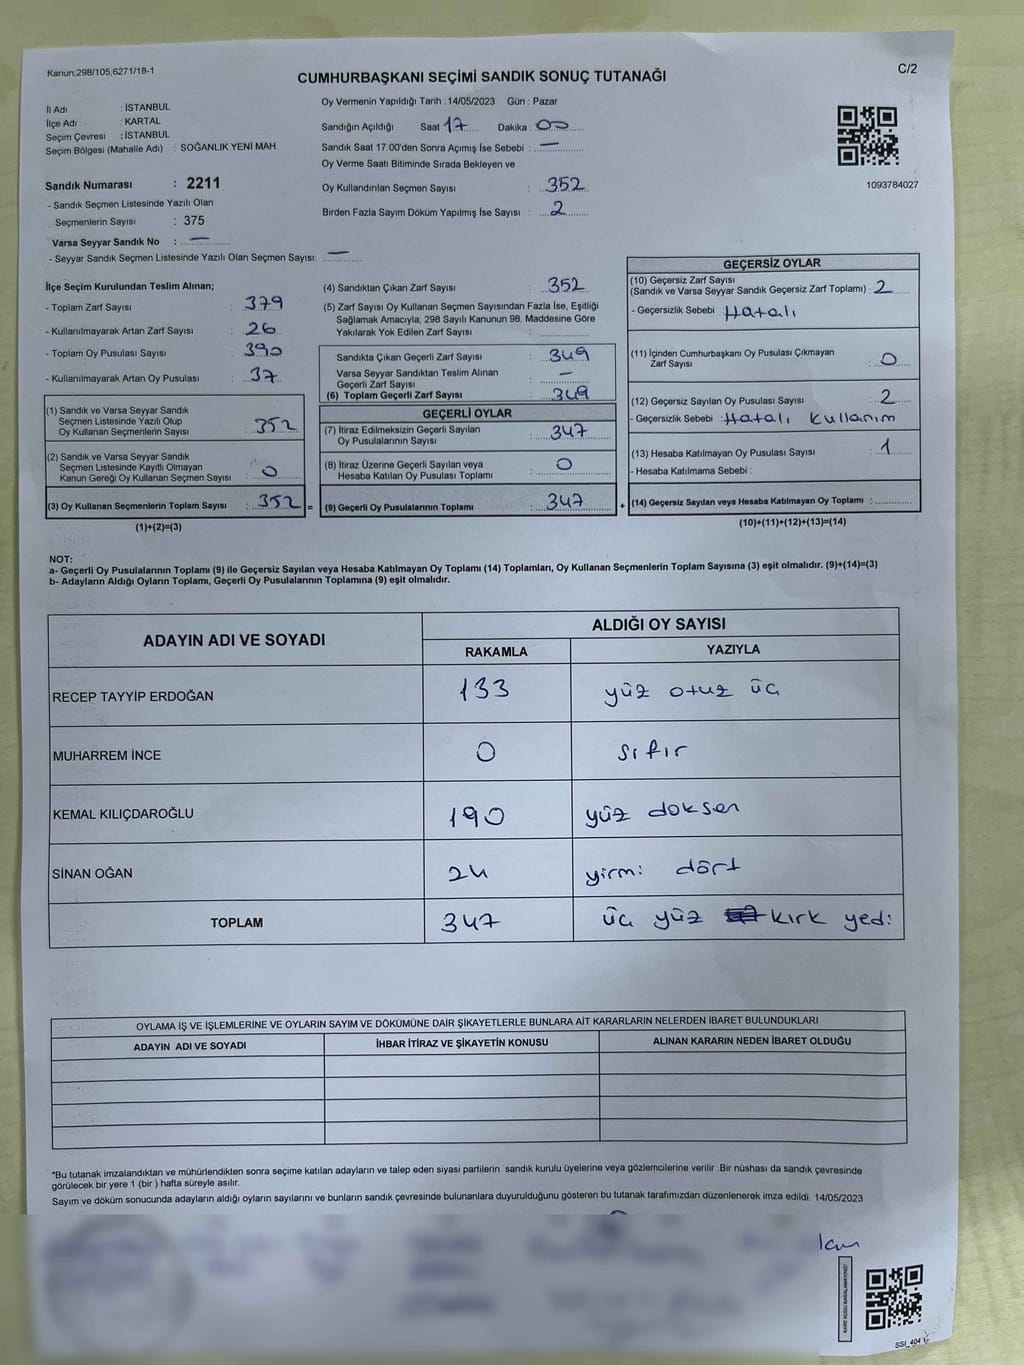 Kanun;298/105,6271/18-1
C/2
CUMHURBAŞKANI SEÇİMİ SANDIK SONUÇ TUTANAĞI
İl Adı : İSTANBUL
İlçe Adı : KARTAL
Seçim Çevresi : İSTANBUL
Seçim Bölgesi (Mahalle Adı) : SOĞANLIK YENİ MAH.
Sandık Numarası : 2211
- Sandık Seçmen Listesinde Yazılı Olan
Seçmenlerin Sayısı : 375
Varsa Seyyar Sandık No : —
- Seyyar Sandık Seçmen Listesinde Yazılı Olan Seçmen Sayısı: —
Oy Vermenin Yapıldığı Tarih : 14/05/2023 Gün : Pazar
Sandığın Açıldığı Saat 17 Dakika : 00
Sandık Saat 17:00'den Sonra Açımış İse Sebebi : —
Oy Verme Saati Bitiminde Sırada Bekleyen ve
Oy Kullandırılan Seçmen Sayısı : 352
Birden Fazla Sayım Döküm Yapılmış İse Sayısı : 2
1093784027
İlçe Seçim Kurulundan Teslim Alınan;
- Toplam Zarf Sayısı : 379
- Kullanılmayarak Artan Zarf Sayısı : 26
- Toplam Oy Pusulası Sayısı : 390
- Kullanılmayarak Artan Oy Pusulası : 37
(1) Sandık ve Varsa Seyyar Sandık
Seçmen Listesinde Yazılı Olup
Oy Kullanan Seçmenlerin Sayısı : 352
(2) Sandık ve Varsa Seyyar Sandık
Seçmen Listesinde Kayıtlı Olmayan
Kanun Gereği Oy Kullanan Seçmen Sayısı : 0
(3) Oy Kullanan Seçmenlerin Toplam Sayısı : 352 =
(1)+(2)=(3)
(4) Sandıktan Çıkan Zarf Sayısı : 352
(5) Zarf Sayısı Oy Kullanan Seçmen Sayısından Fazla İse, Eşitliği
Sağlamak Amacıyla; 298 Sayılı Kanunun 98. Maddesine Göre
Yakılarak Yok Edilen Zarf Sayısı :
Sandıkta Çıkan Geçerli Zarf Sayısı : 349
Varsa Seyyar Sandıktan Teslim Alınan
Geçerli Zarf Sayısı : —
(6) Toplam Geçerli Zarf Sayısı : 349
GEÇERLİ OYLAR
(7) İtiraz Edilmeksizin Geçerli Sayılan
Oy Pusulalarının Sayısı : 347
(8) İtiraz Üzerine Geçerli Sayılan veya
Hesaba Katılan Oy Pusulası Toplamı : 0
(9) Geçerli Oy Pusulalarının Toplamı : 347 +
GEÇERSİZ OYLAR
(10) Geçersiz Zarf Sayısı
(Sandık ve Varsa Seyyar Sandık Geçersiz Zarf Toplamı) : 2
- Geçersizlik Sebebi : Hatalı
(11) İçinden Cumhurbaşkanı Oy Pusulası Çıkmayan
Zarf Sayısı : 0
(12) Geçersiz Sayılan Oy Pusulası Sayısı : 2
- Geçersizlik Sebebi : Hatalı kullanım
(13) Hesaba Katılmayan Oy Pusulası Sayısı : 1
- Hesaba Katılmama Sebebi :
(14) Geçersiz Sayılan veya Hesaba Katılmayan Oy Toplamı :
(10)+(11)+(12)+(13)=(14)
NOT:
a- Geçerli Oy Pusulalarının Toplamı (9) ile Geçersiz Sayılan veya Hesaba Katılmayan Oy Toplamı (14) Toplamları, Oy Kullanan Seçmenlerin Toplam Sayısına (3) eşit olmalıdır. (9)+(14)=(3)
b- Adayların Aldığı Oyların Toplamı, Geçerli Oy Pusulalarının Toplamına (9) eşit olmalıdır.
ADAYIN ADI VE SOYADI ALDIĞI OY SAYISI
RAKAMLA YAZIYLA
RECEP TAYYİP ERDOĞAN 133 yüz otuz üç
MUHARREM İNCE 0 sıfır
KEMAL KILIÇDAROĞLU 190 yüz doksen
SİNAN OĞAN 24 yirmi dört
TOPLAM 347 üç yüz kırk yedi
OYLAMA İŞ VE İŞLEMLERİNE VE OYLARIN SAYIM VE DÖKÜMÜNE DAİR ŞİKAYETLERLE BUNLARA AİT KARARLARIN NELERDEN İBARET BULUNDUKLARI
ADAYIN ADI VE SOYADI İHBAR İTİRAZ VE ŞİKAYETİN KONUSU ALINAN KARARIN NEDEN İBARET OLDUĞU
*Bu tutanak imzalandıktan ve mühürlendikten sonra seçime katılan adayların ve talep eden siyasi partilerin sandık kurulu üyelerine veya gözlemcilerine verilir .Bir nüshası da sandık çevresinde
görülecek bir yere 1 (bir ) hafta süreyle asılır.
Sayım ve döküm sonucunda adayların aldığı oyların sayılarını ve bunların sandık çevresinde bulunanlara duyurulduğunu gösteren bu tutanak tarafımızdan düzenlenerek imza edildi. 14/05/2023